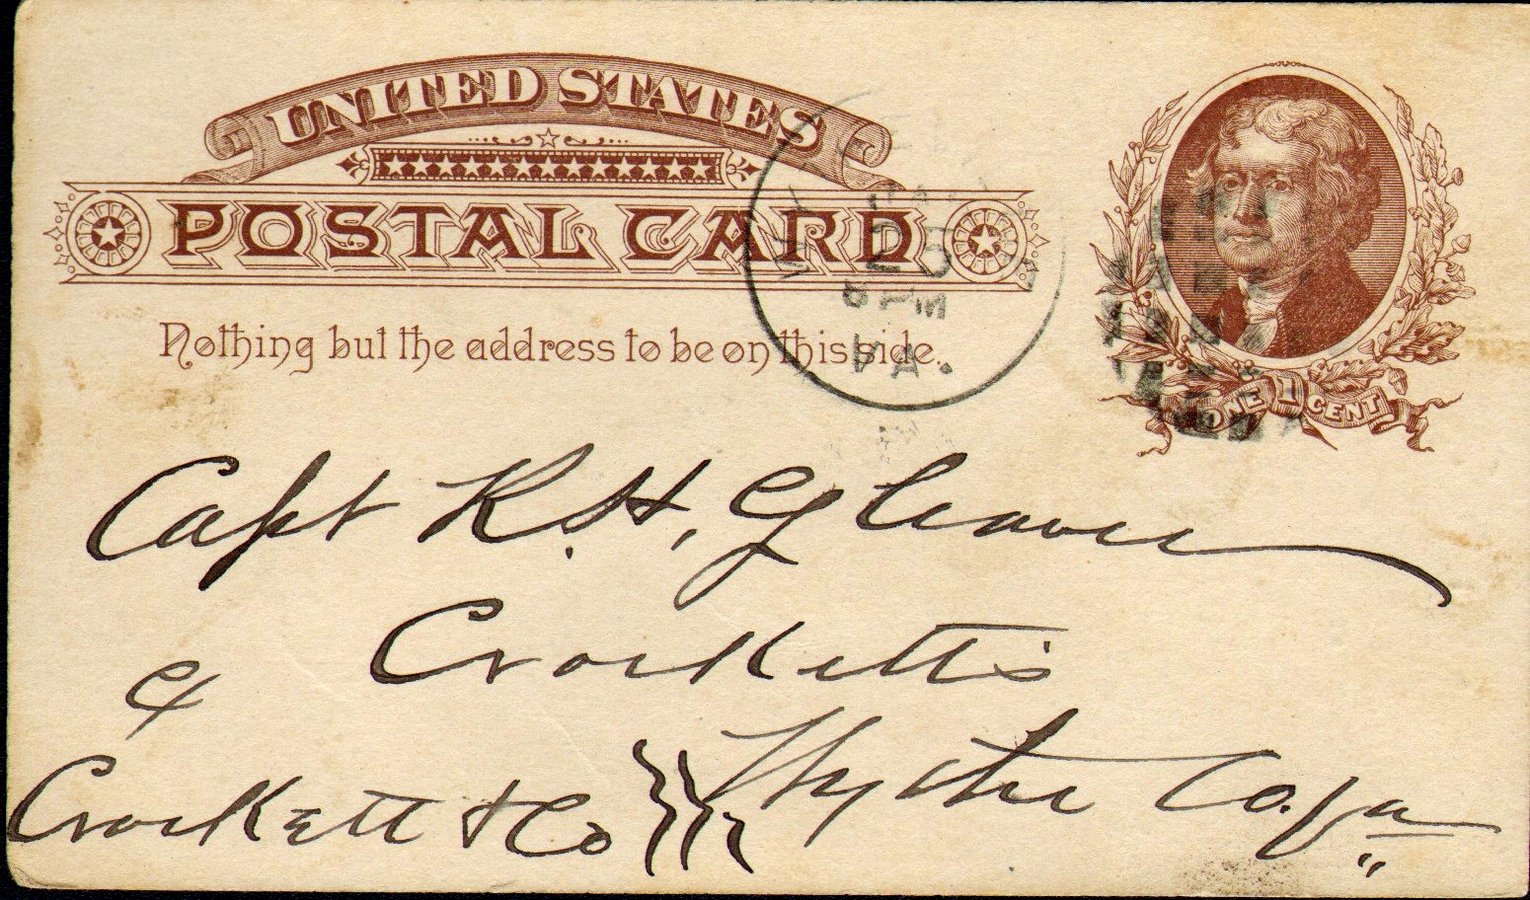 UNITED STATES
POSTAL CARD
Nothing but the address to be on this side.
20
PM
VA.
ONE 1 CENT
Capt R. H, Gleaves
Crockett's
&
Crockett & Co
Wythe Co. Va